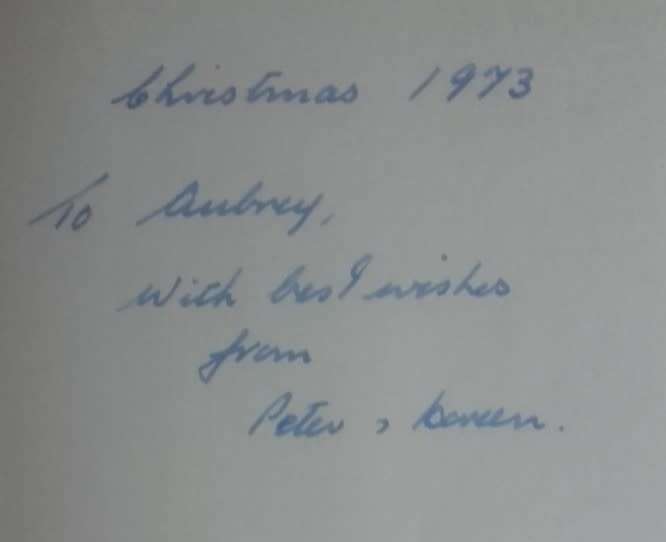 Christmas 1973
To Aubrey,
With best wishes
from
Peter,